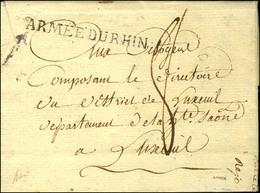 ARMÉE DU RHIN
Aux Citoyens
Composant le Directoire
du District de Luxeuil
département de la hte Saône
a Luxeuil